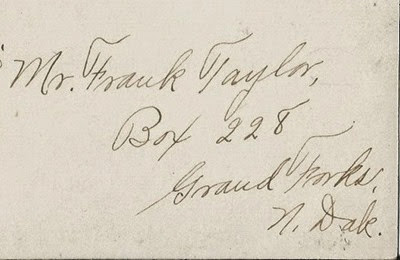 Mr. Frank Taylor,
Box 228
Grand Forks,
N. Dak.